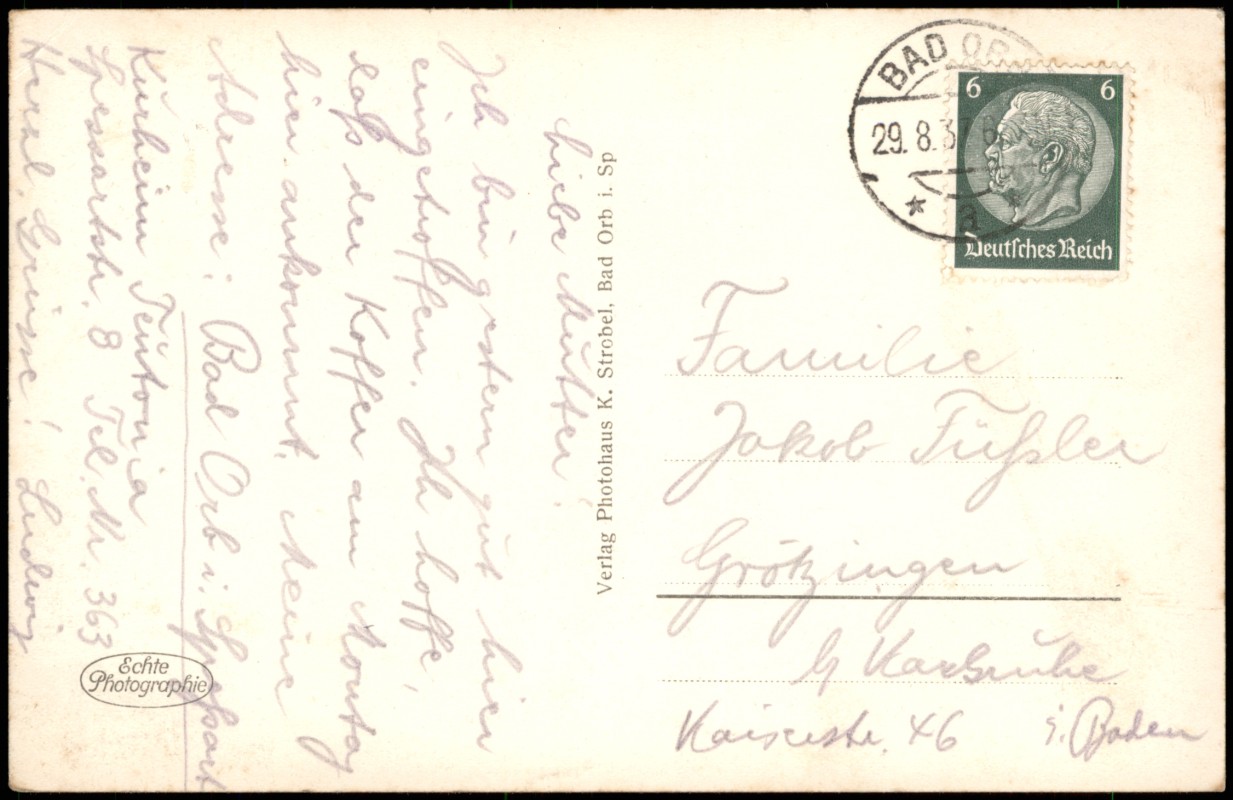 Liebe Mutter!
Ich bin gestern gut hier
eingetroffen. Ich hoffe,
daß der Koffer am Montag
hier ankommt. Meine
Adresse: Bad Orb i. Spessart
Kurheim Teutonia
Spessartstr. 8 Tel. Nr. 363
Herzl. Grüsse! Ludwig
Echte
Photographie
Verlag Photohaus K. Strobel, Bad Orb i. Sp
BAD OR
29.8.37
a
6 6
Deutsches Reich
Familie
Jakob Füßler
Grötzingen
b/ Karlsruhe
Kaiserstr. 46 i. Baden